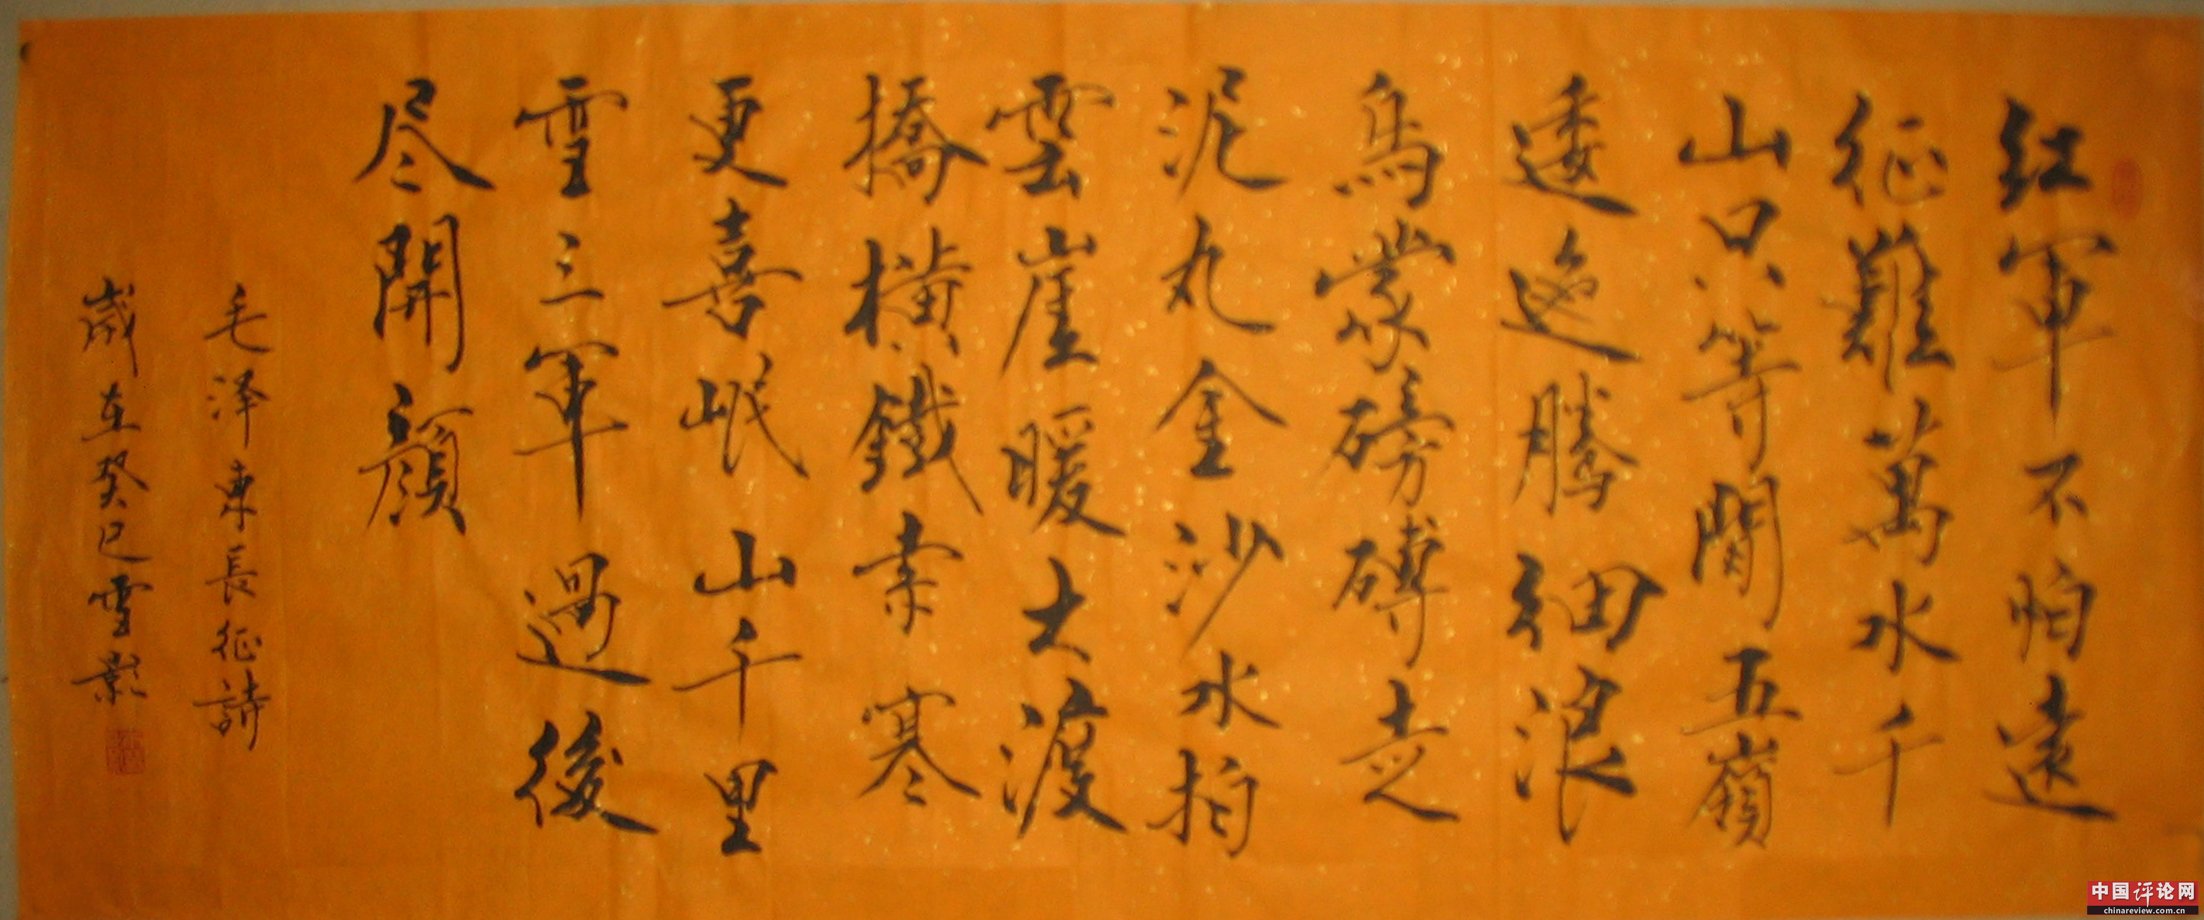 红軍不怕遠
征難萬水千
山只等閒五嶺
逶迤腾细浪
烏蒙磅礴走
泥丸金沙水拍
雲崖暖大渡
橋横鐵索寒
更喜岷山千里
雪三軍過後
尽開顔
毛泽東長征詩
歲在癸巳雪影
中国评论网
chinareview.com.cn